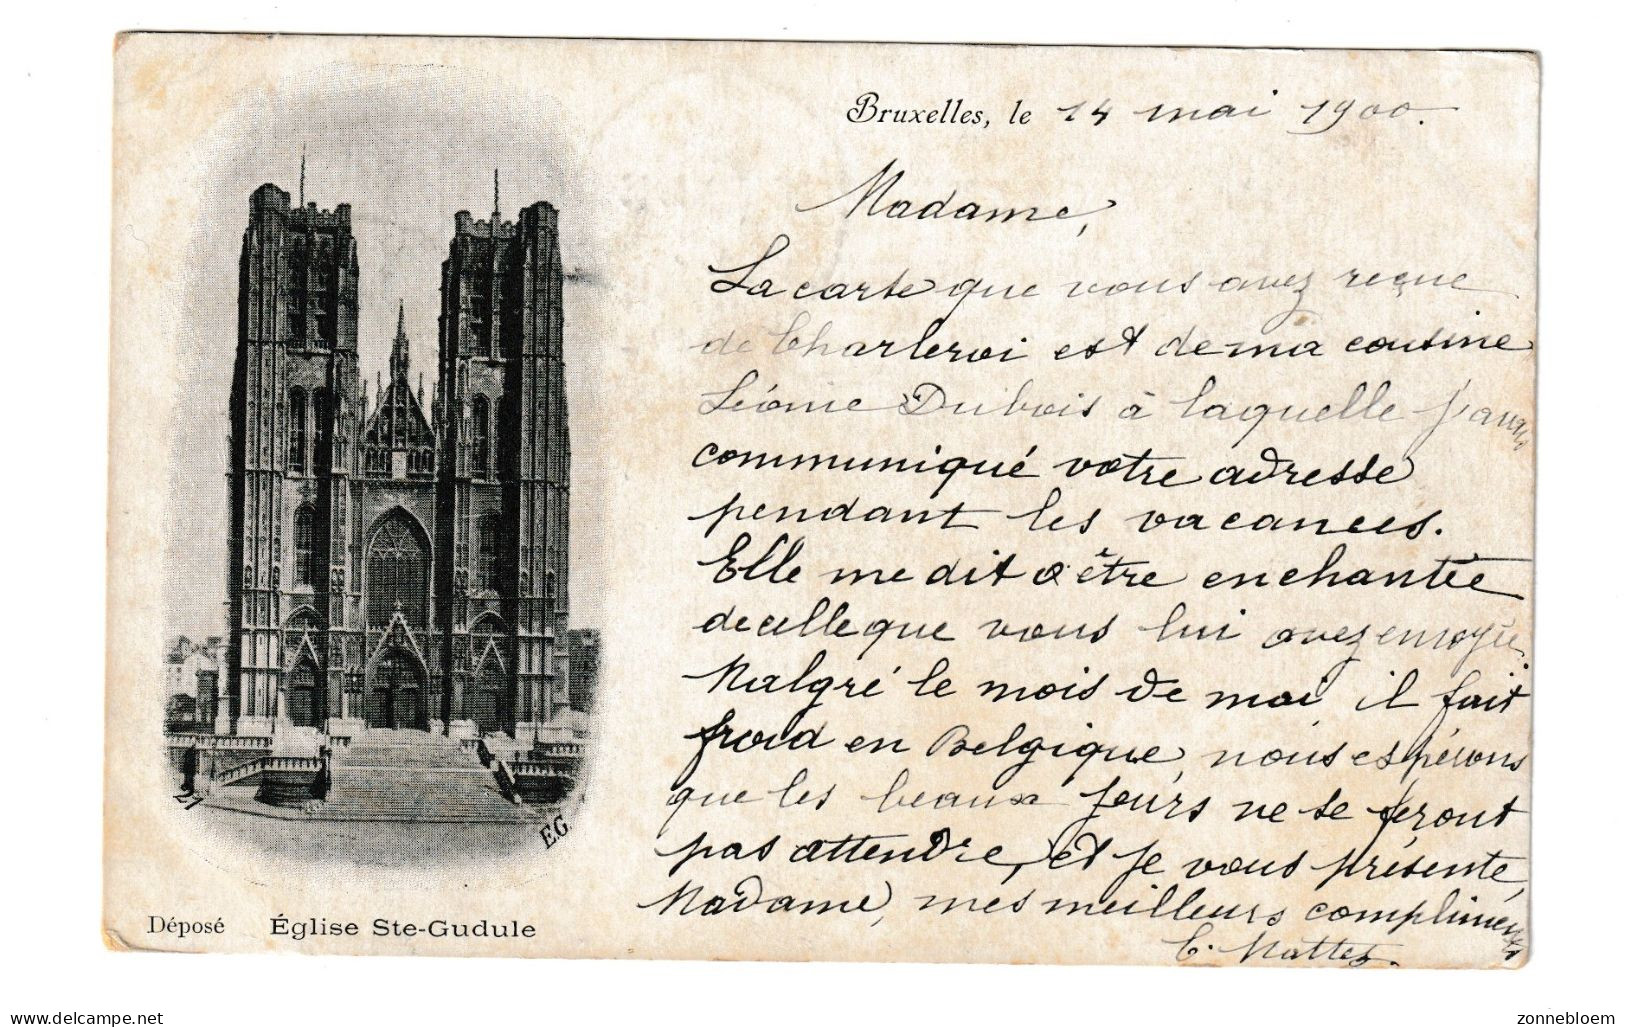 Bruxelles, le 14 mai 1900.
Madame,
La carte que vous avez reçue
de Charleroi est de ma cousine
Léonie Dubois à laquelle j'avais
communiqué votre adresse
pendant les vacances.
Elle me dit d'être enchantée
de celle que vous lui avez envoyée
Malgré le mois de mai il fait
froid en Belgique, nous espérons
que les beaux jours ne se feront
pas attendre, et je vous présente,
Madame, mes meilleurs compliments
C. Mattez.
21
E.G.
Déposé Église Ste-Gudule
www.delcampe.net
zonnebloem